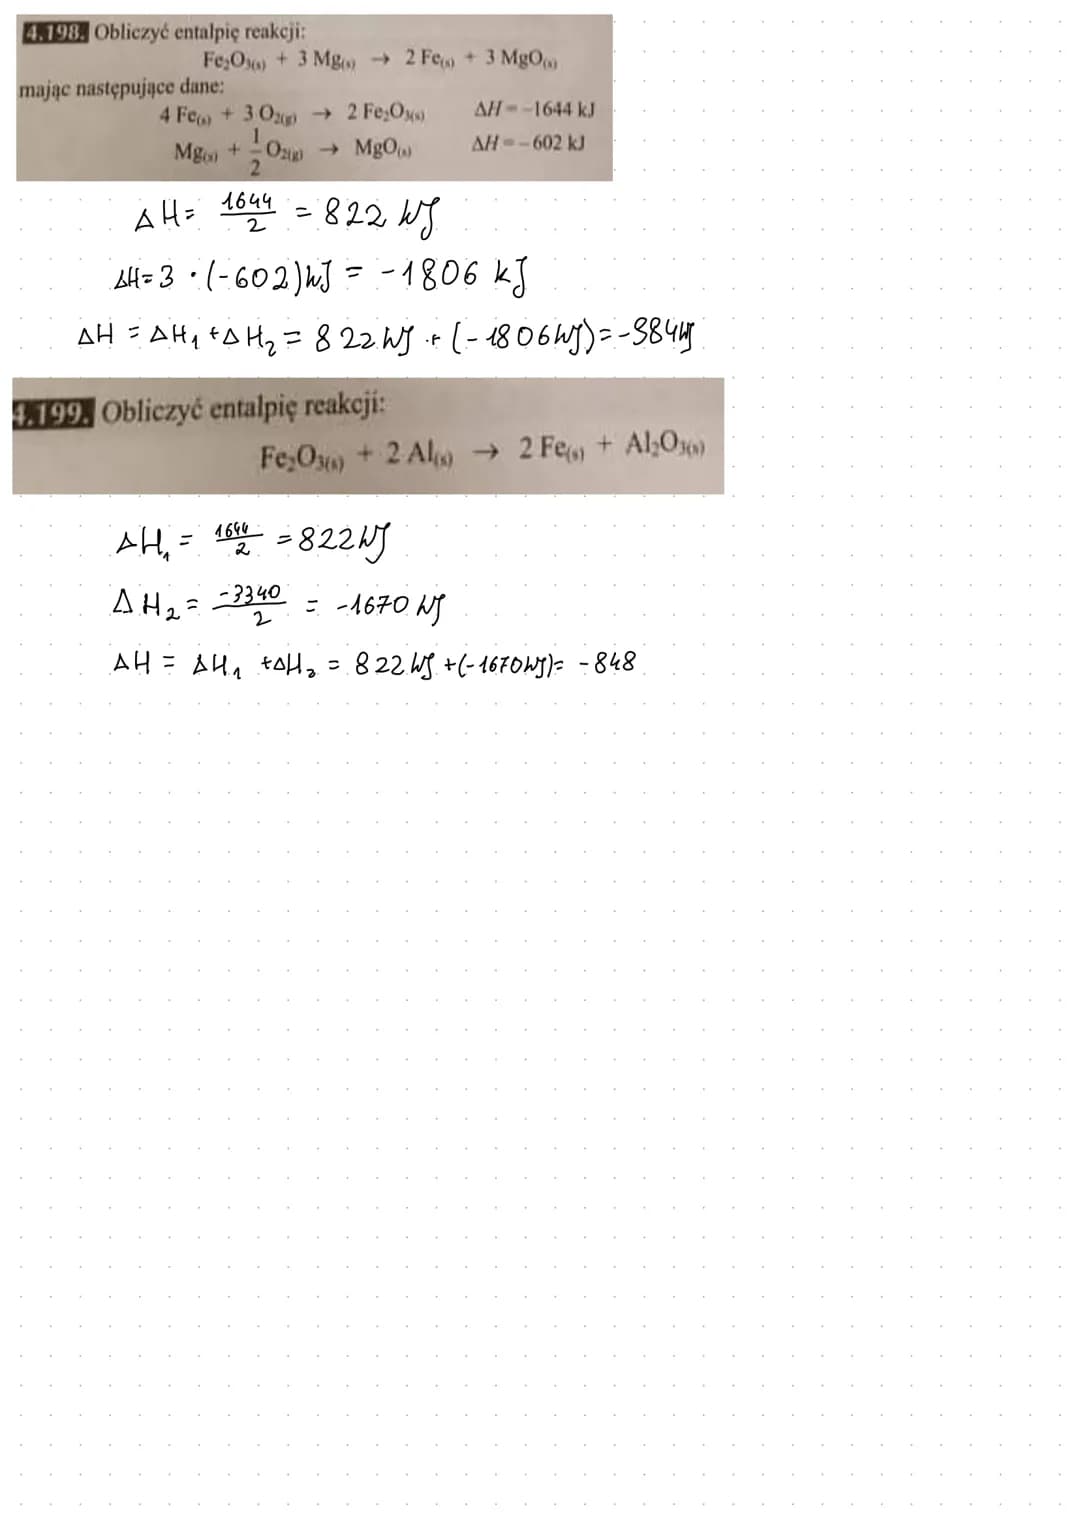 4.198. Obliczyć entalpię reakcji:
Fe₂O₃(s) + 3 Mg(s) → 2 Fe(s) + 3 MgO(s)
mając następujące dane:
4 Fe(s) + 3 O₂(g) → 2 Fe₂O₃(s) ΔH = -1644 kJ
Mg(s) + 1/2 O₂(g) → MgO(s) ΔH = -602 kJ
ΔH = 1644/2 = 822 kJ
ΔH = 3 · (-602) kJ = -1806 kJ
ΔH = ΔH₁ + ΔH₂ = 822 kJ + (-1806 kJ) = -984 kJ
4.199. Obliczyć entalpię reakcji:
Fe₂O₃(s) + 2 Al(s) → 2 Fe(s) + Al₂O₃(s)
ΔH₁ = 1644/2 = 822 kJ
ΔH₂ = -3340/2 = -1670 kJ
ΔH = ΔH₁ + ΔH₂ = 822 kJ + (-1670 kJ) = -848